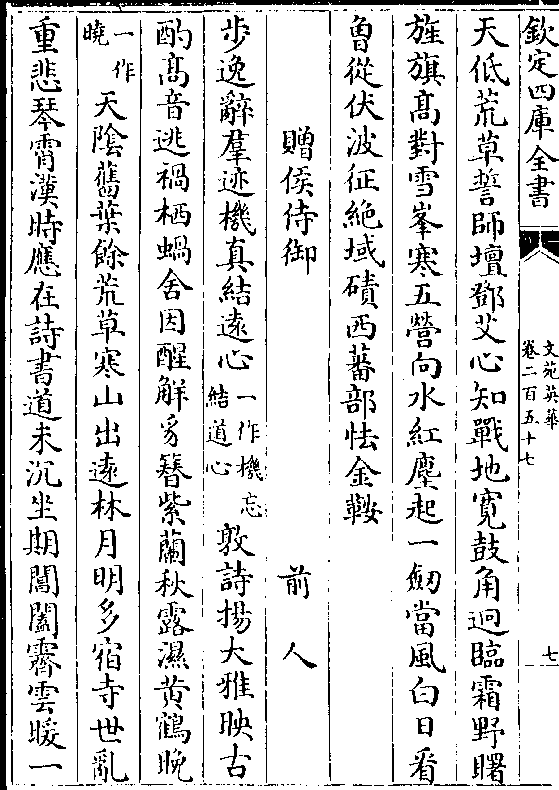 欽定四庫全書
文苑英華
卷二百五十七
七
天低荒草誓師壇鄧艾心知戰地寛鼓角迥臨霜野曙
旌旗髙對雪峯寒五營向水紅塵起一劒當風白日看
曾從伏波征絶域磧西蕃部怯金鞍
贈侯侍御 前人
步逸辭羣迹機真結遠心一作機忘結道心敦詩揚大雅映古
酌髙音逃禍栖蝸舍因醒解豸簪紫蘭秋露濕黄鶴晚
一作曉天陰舊葉餘荒草寒山出遠林月明多宿寺世亂
重悲琴霄漢時應在詩書道未沉坐期閶闔霽雲暖一